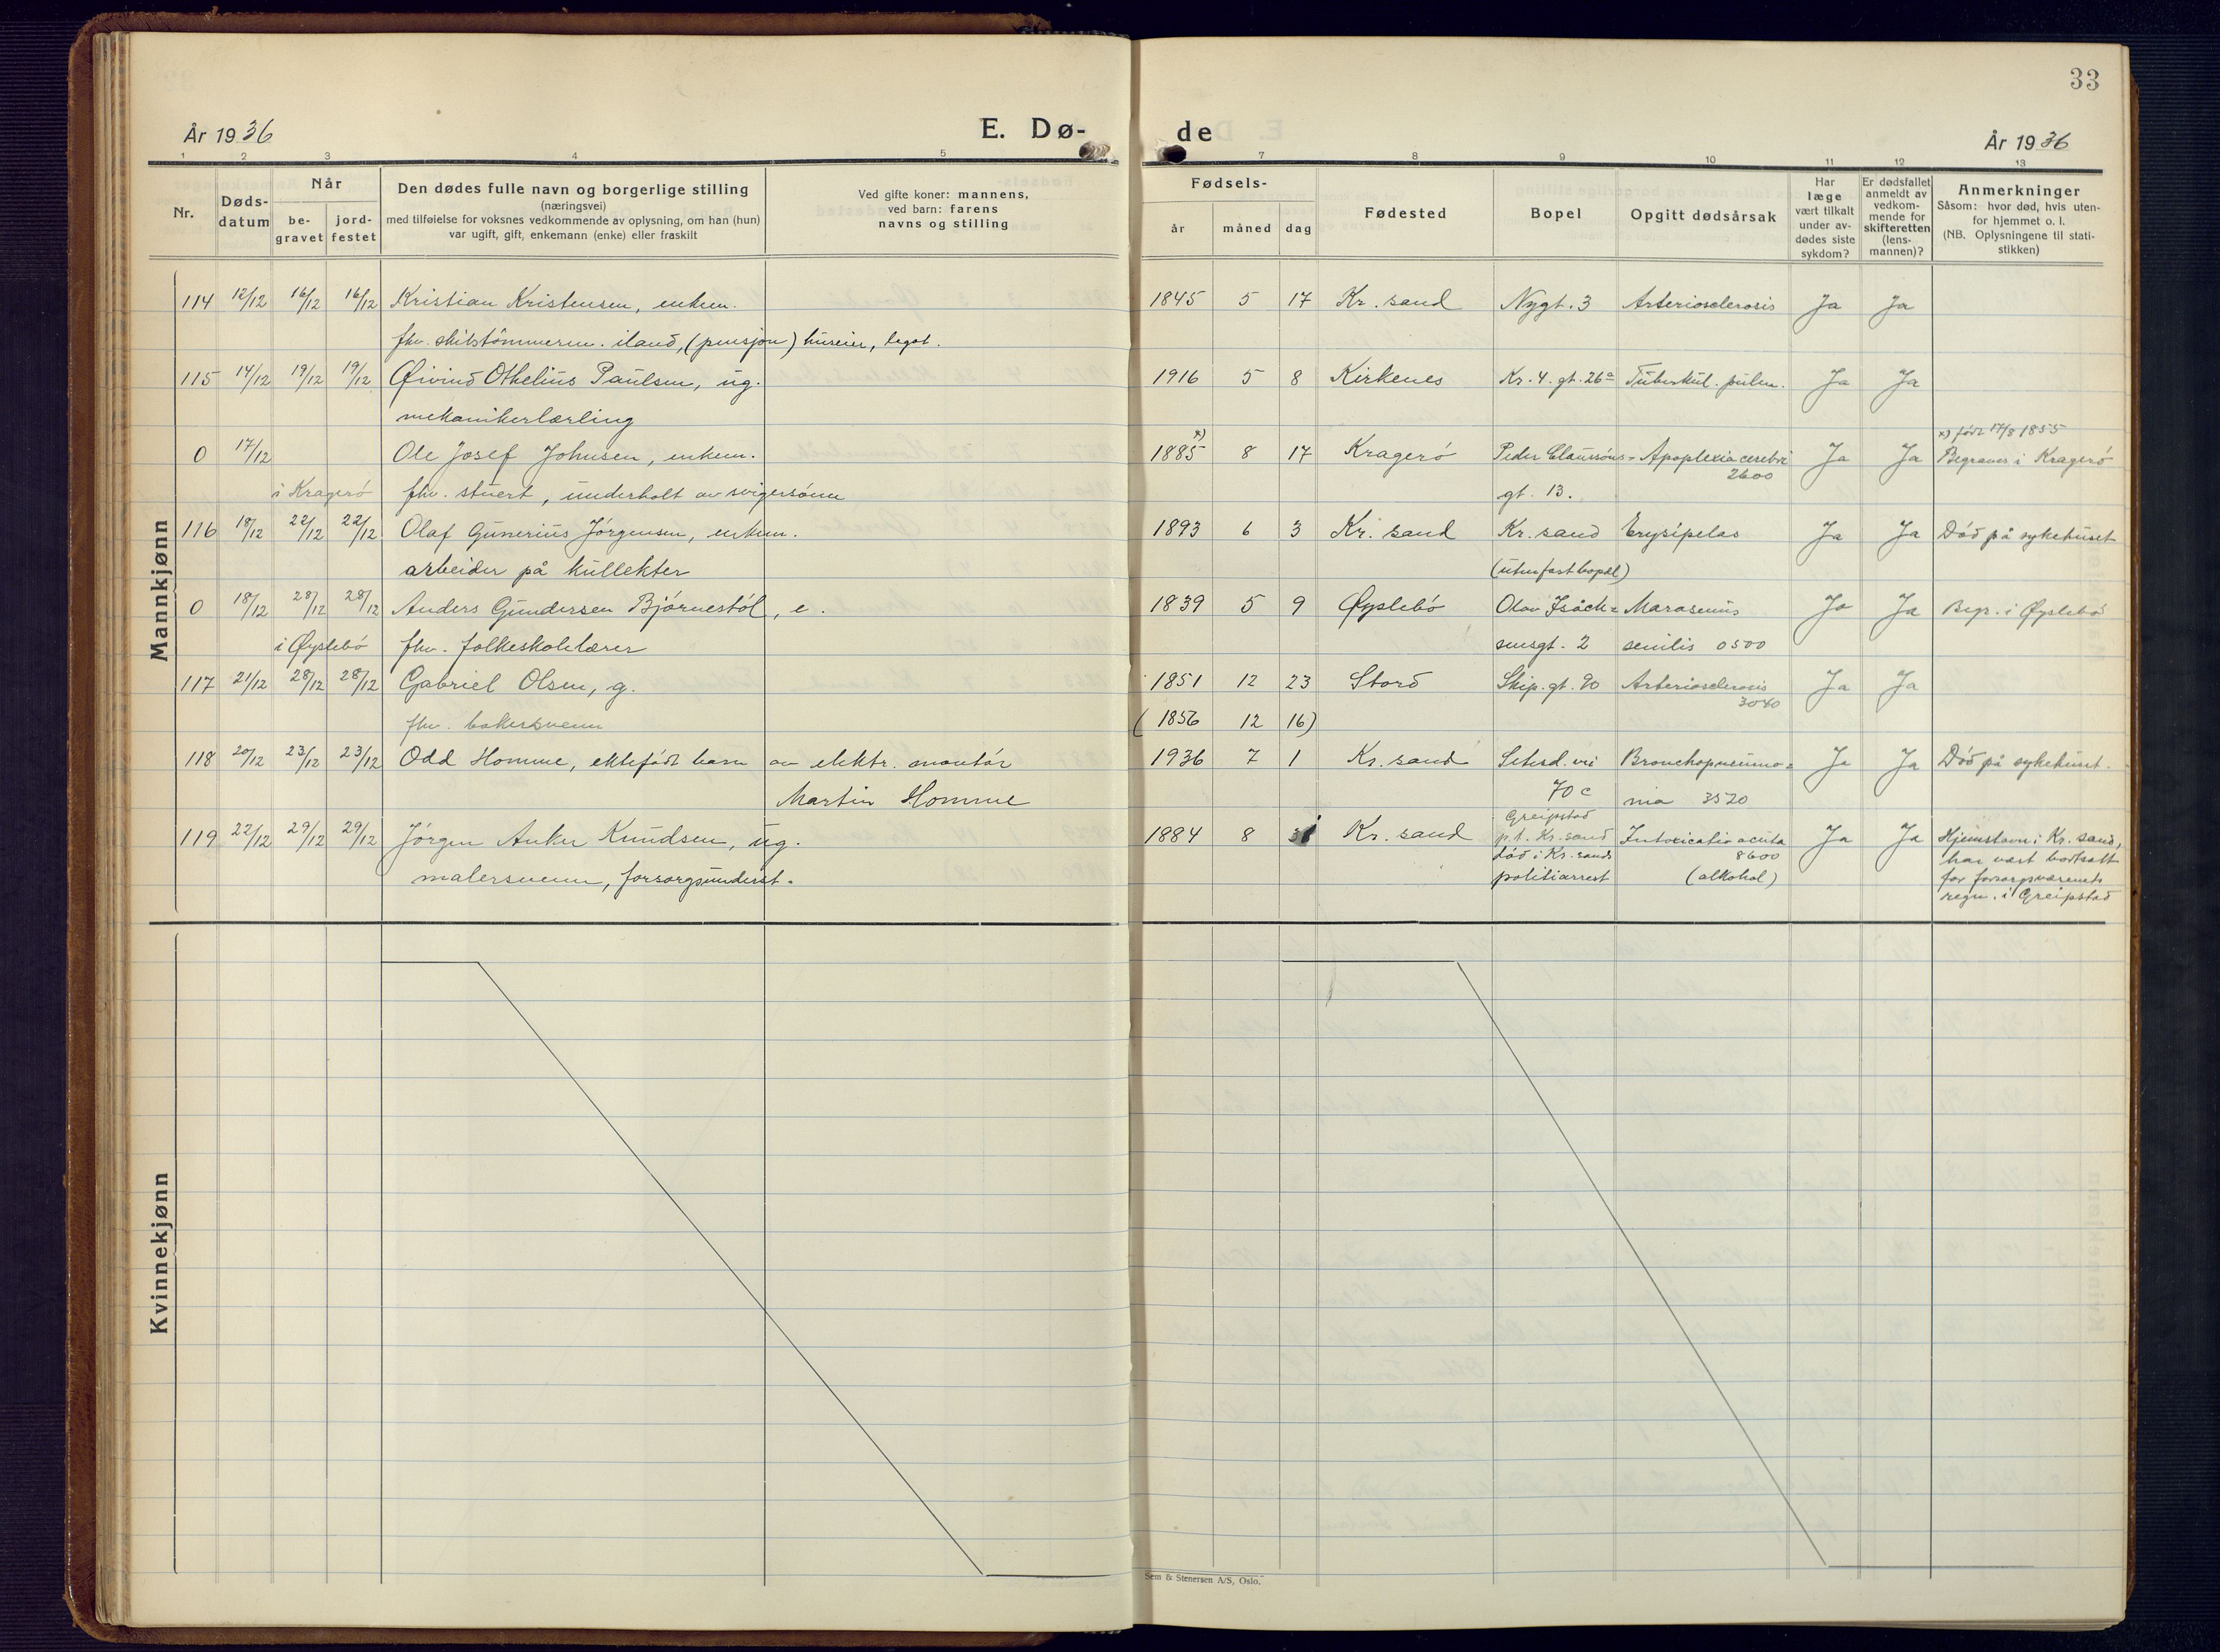 33
År 1936
E. Dø-
de
År 1936
1 2 3 4 5 7 8 9 10 11 12 13
Nr.
Døds-
datum
Når
be-
gravet
jord-
festet
Den dødes fulle navn og borgerlige stilling
(næringsvei)
med tilføielse for voksnes vedkommende av oplysning, om han (hun)
var ugift, gift, enkemann (enke) eller fraskilt
Ved gifte koner: mannens,
ved barn: farens
navns og stilling
Fødsels-
år måned dag
Fødested
Bopel
Opgitt dødsårsak
Har
læge
vært tilkalt
under av-
dødes siste
sykdom?
Er dødsfallet
anmeldt av
vedkom-
mende for
skifteretten
(lens-
mannen)?
Anmerkninger
Såsom: hvor død, hvis uten-
for hjemmet o. l.
(NB. Oplysningene til stati-
stikken)
Mannkjønn
114 12/12 16/12 16/12 Kristian Kristensen, enkem. 1845 5 17 Kr. sand Nygt. 3 Arteriosclerosis Ja Ja
fhv. skibstømmerm. iland, (pensjon) huseier, legat.
115 14/12 19/12 19/12 Øivind Othelius Paulsen, ug. 1916 5 8 Kirkenes Kr. 4. gt. 26a Tuberkul. pulm. Ja Ja
mekanikerlærling
x) født 17/8 1855
0 17/12 Ole Josef Johnsen, enkem. 1885 x) 8 17 Kragerö Peder Claussøns= Apoplexia cerebri Ja Ja Begraves i Kragerö
i Kragerö fhv. stuert, underholt av svigersönn gt. 13. 2600
116 18/12 22/12 22/12 Olaf Gunerius Jörgensen, enkem. 1893 6 3 Kr. sand Kr. sand Erysipelas Ja Ja Död på sykehuset
arbeider på kullekter (uten fast bopel)
0 18/12 28/12 28/12 Anders Gundersen Bjørnestøl, e. 1839 5 9 Øyslebö Olav Isåck= Marasmus Ja Ja Begr. i Øyslebö
i Øyslebö fhv. folkeskolelærer sensgt. 2 senilis 0500
117 21/12 28/12 28/12 Gabriel Olsen, g. 1851 12 23 Stord Skip. gt. 90 Arteriosclerosis Ja Ja
fhv. bakersvenn (1856 12 16) 3040
118 20/12 23/12 23/12 Odd Homme, ektefødt barn av elektr. montör 1936 7 1 Kr. sand Setesd. vei Bronchopneumo= Ja Ja Död på sykehuset.
Martin Homme 70 c nia 3520
119 22/12 29/12 29/12 Jörgen Anker Knudsen, ug. 1884 8 Kr. sand Greipstad
p. t. Kr. sand
död i Kr. sands
politiarrest
Intoxicatio acuta
8600
(alkohol)
Ja Ja
Hjemstavn i Kr. sand,
har vært bortsatt
for forsorgsvæsenets
regn. i Greipstad
malersvenn, forsorgsunderst.
Kvinnekjønn
Sem & Stenersen A/S, Oslo.